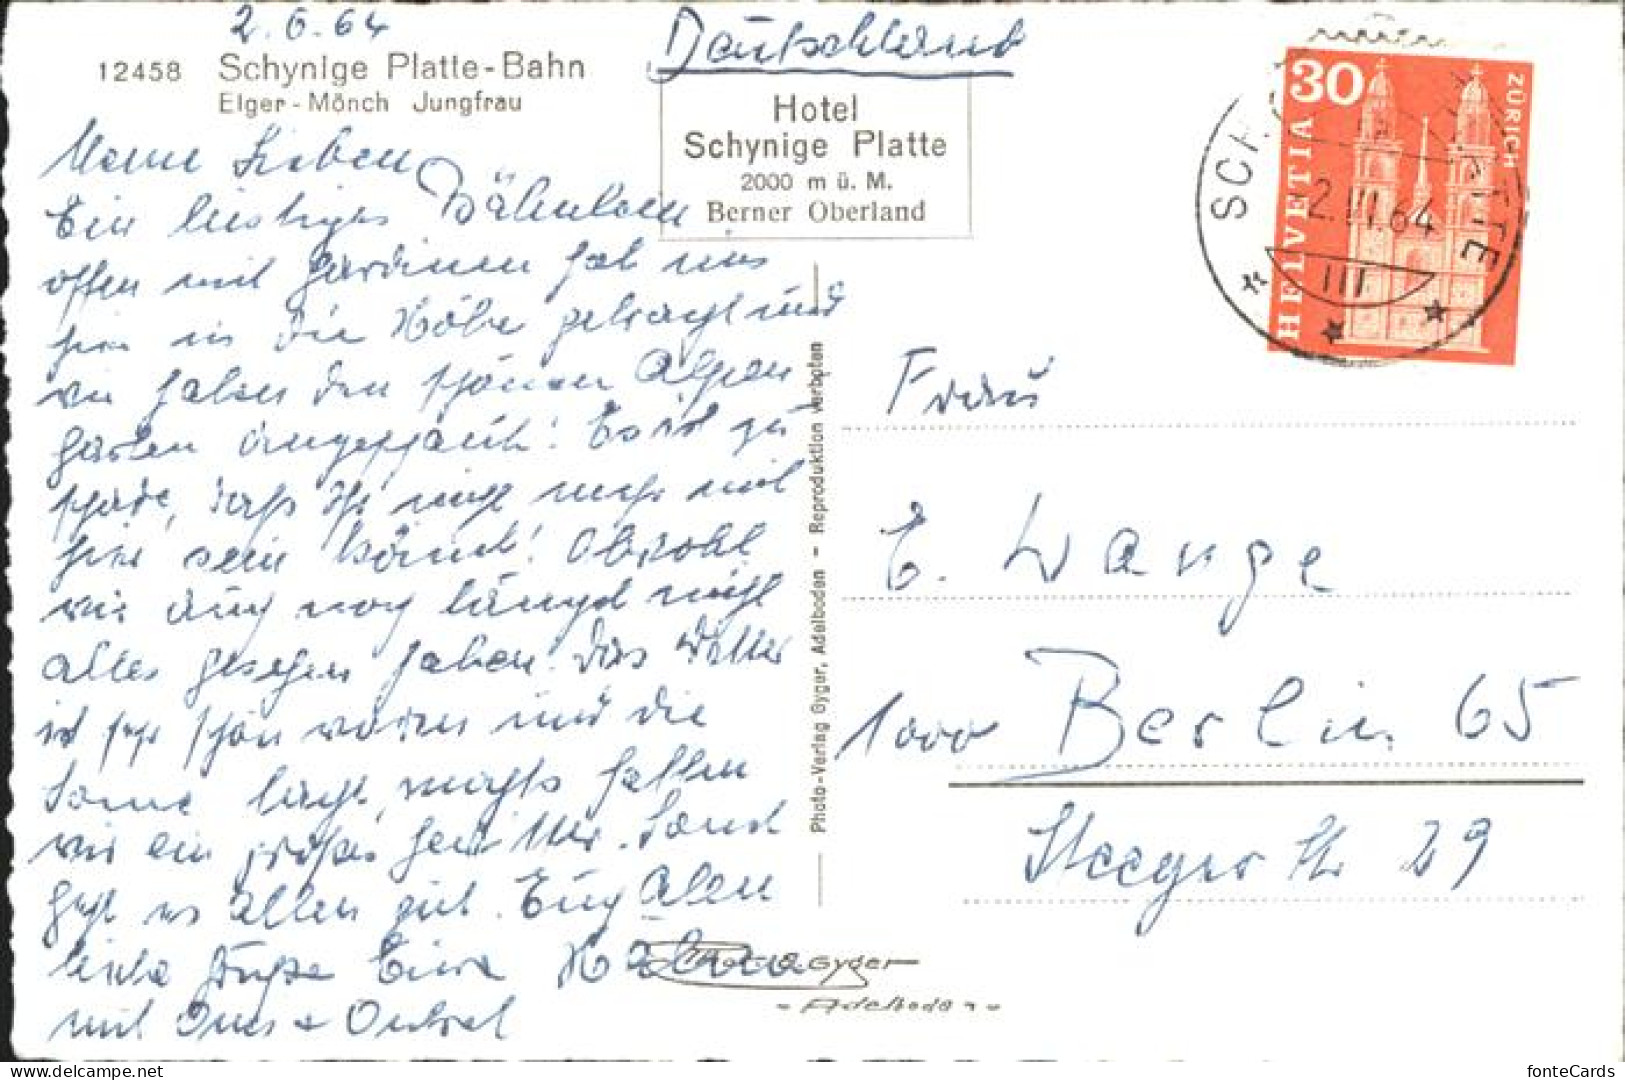 2.6.64
12458 Schynige Platte-Bahn
Eiger - Mönch Jungfrau
Meine Lieben
Ein lustiges Bähnlein
offen mit Gardinen hat uns
hier in die Höhe gebracht und
wir haben den schönen Alpen
garten angeschaut! Es ist zu
schade, daß Ihr nicht mehr mit
hier sein könnt! Obwohl
wir auch noch längst nicht
alles gesehen haben. Das Wetter
ist sehr schön warm und die
Sonne lacht, nachts hatten
wir ein großes Gewitter. Sonst
geht es allen gut. Euch allen
liebe Grüße Eure
mit
Deutschland
Hotel
Schynige Platte
2000 m ü. M.
Berner Oberland
Photo-Verlag Gyger, Adelboden - Reproduktion verboten
Gyger
- Adelboden -
30
HELVETIA
ZÜRICH
2.VI.64
III
Frau
E. Wange
1000 Berlin 65
Steeger Str 29
delcampe.net
fonteCards